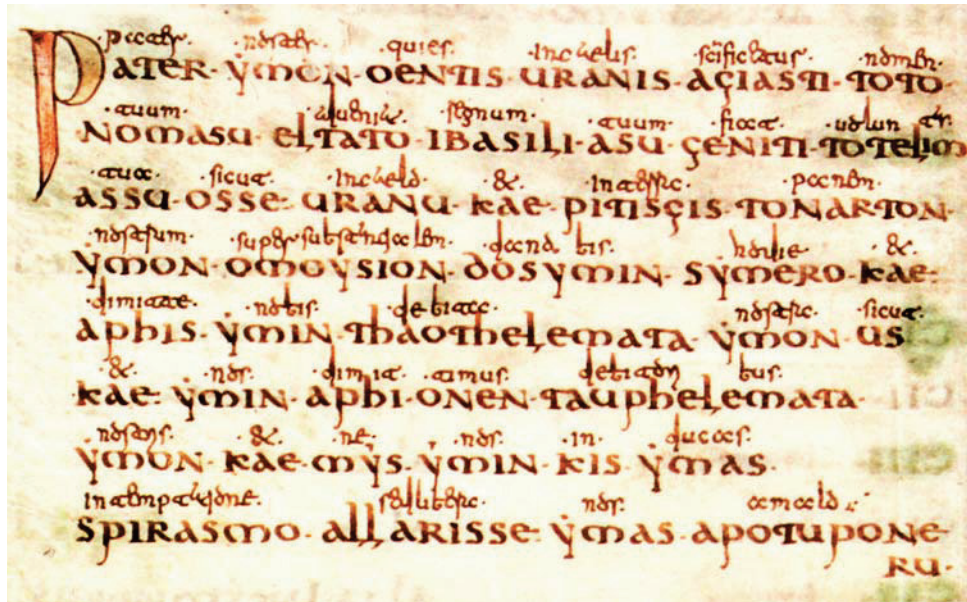 pater · noster · qui es · in caelis · scificetur · nomen ·
PATER · YMON · OENTIS · URANIS · AGIASTI · TOTO
tuum · adveniat · regnum · tuum · fiat · voluntas
NOMASU · ELTATO · IBASILI · ASU · GENITI · TOTELIM
tua · sicut · in caelo · & · in terra · panem ·
ASSU · OSSE · URANU · KAE · PITISGIS · TONARTON ·
nostrum · super substantialem · da nobis · hodie · & ·
YMON · OMOYSION · DOSYMIN · SYMERO · KAE ·
dimitte · nobis · debita · nostra · sicut ·
APHIS · YMIN · THAOTHELEMATA · YMON · US
& · nos · dimittimus · debitoribus ·
KAE · YMIN · APHI · ONEN · TAUPHELEMATA ·
nostris · & · ne · nos · in · ducas ·
YMON · KAE · MYS · YMIN · KIS · YMAS ·
in temptatione · sed libera · nos · a malo
SPIRASMO · ALLARISSE · YMAS · APOTUPONE
RU ·